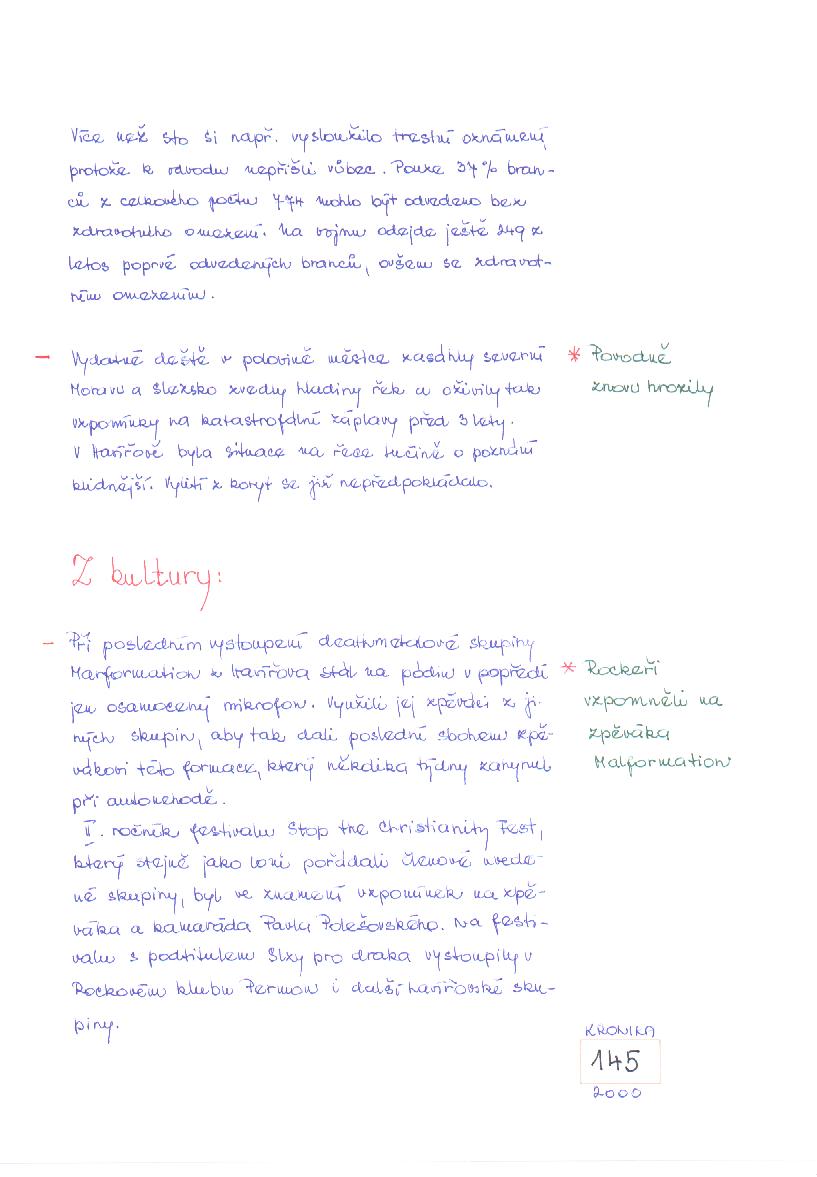 Více než sto si např. vysloužilo trestní oznámení,
protože k odvodu nepřišli vůbec. Pouze 37% bran-
ců z celkového počtu 774 mohlo být odvedeno bez
zdravotního omezení. Na vojnu odejde ještě 249 z
letos poprvé odvedených branců, ovšem se zdravot-
ním omezením.
– Vydatné deště v polovině měsíce zasáhly severní
Moravu a Slezsko zvedly hladiny řek a oživily tak
vzpomínky na katastrofální záplavy před 3 lety.
V Havířově byla situace na řece Lučině o poznání
klidnější. Vylití z koryt se již nepředpokládalo.
* Povodně
znovu hrozily
Z kultury:
– Při posledním vystoupení deathmetalové skupiny
Marformation z Havířova stál na pódiu v popředí
jen osamocený mikrofon. Využili jej zpěváci z ji-
ných skupin, aby tak dali poslední sbohem zpě-
vákovi této formace, který několika týdny zahynul
při autonehodě.
II. ročník festivalu Stop the Christianity Fest,
který stejně jako loni pořádali členové uvede-
né skupiny, byl ve znamení vzpomínek na zpě-
váka a kamaráda Pavla Polešovského. Na festi-
valu s podtitulem Slzy pro draka vystoupily v
Rockovém klubu Permon i další havířovské sku-
piny.
* Rockeři
vzpomněli na
zpěváka
Malformation
KRONIKA
145
2000